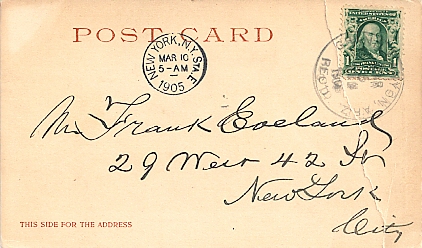 POST CARD
NEW YORK, N.Y. STA. E
MAR 10
5-AM
1905
REC'D.
Mr Frank Eveland
29 West 42 St
New York
City
THIS SIDE FOR THE ADDRESS